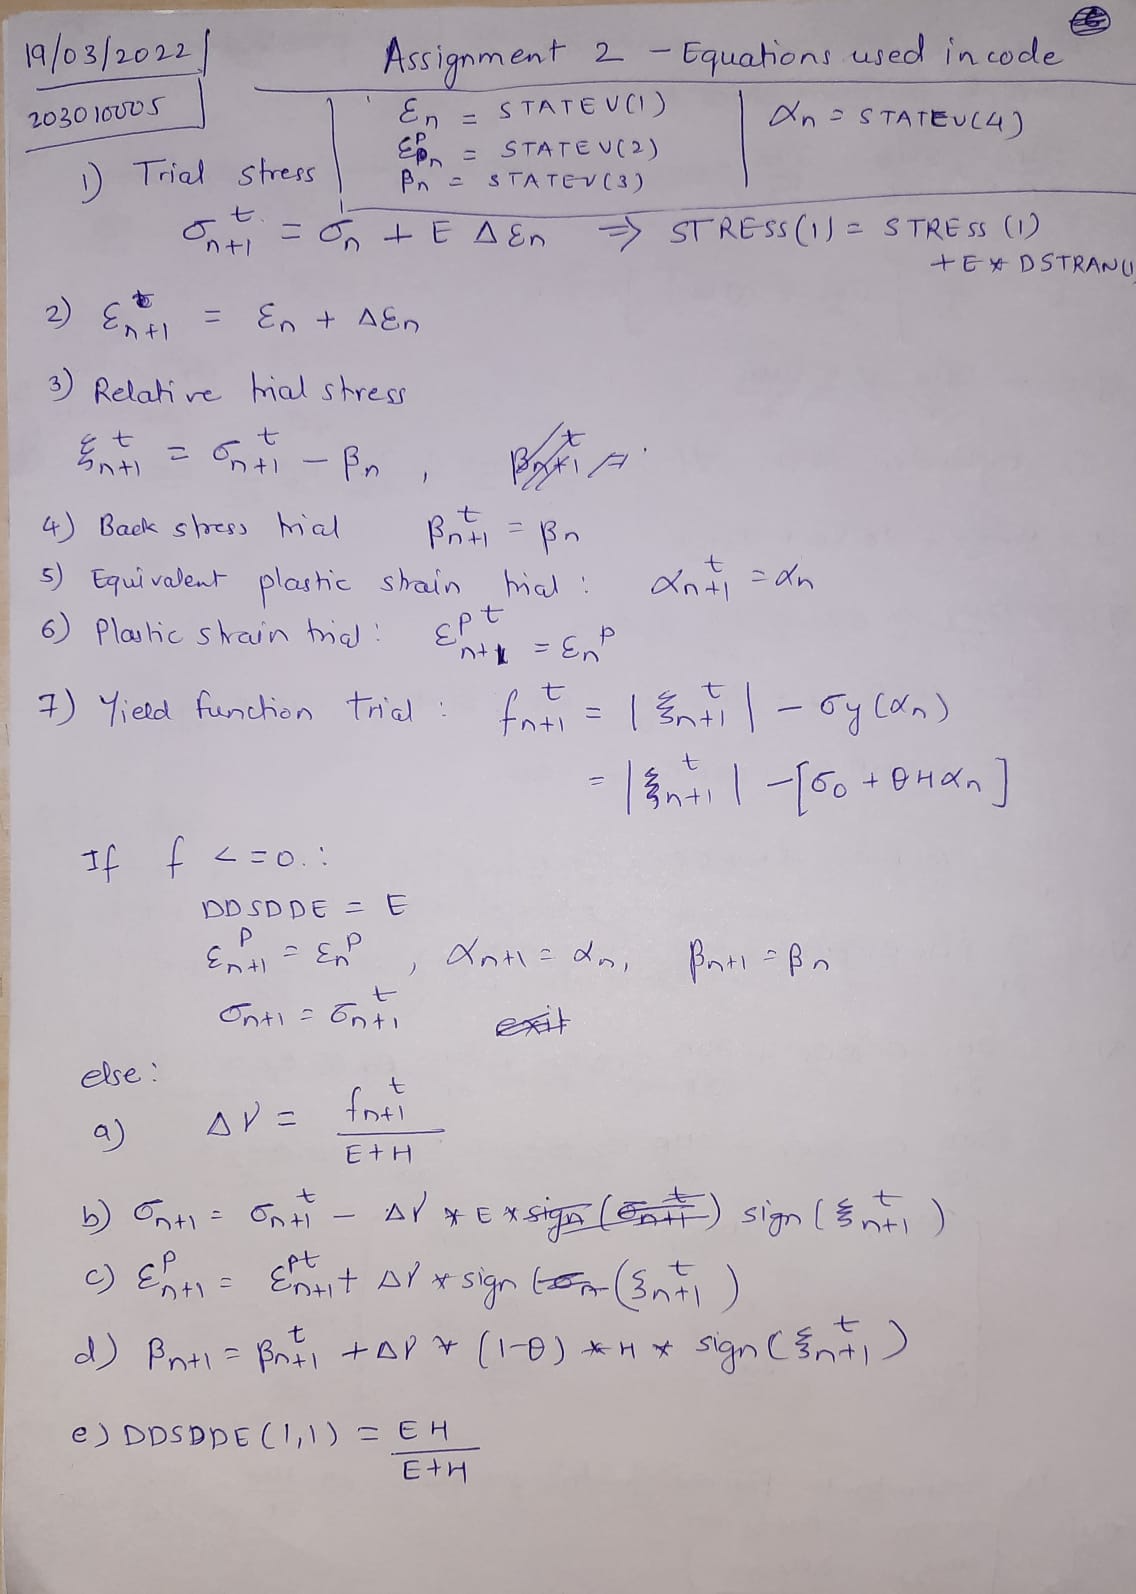 19/03/2022
Assignment 2 - Equations used in code
203010005
εn = STATEV(1)
αn = STATEV(4)
εpn = STATEV(2)
βn = STATEV(3)
1) Trial stress
σn+1^t = σn + E Δεn ⇒ STRESS(1) = STRESS(1)
+E*DSTRAN(
2) εn+1^t = εn + Δεn
3) Relative trial stress
ξn+1^t = σn+1^t - βn ,
4) Back stress trial βn+1^t = βn
5) Equivalent plastic strain trial : αn+1^t = αn
6) Plastic strain trial : εn+1^pt = εn^p
7) Yield function trial : fn+1^t = |ξn+1^t| - σy(αn)
= |ξn+1^t| - [σ0 + θHαn]
If f <=0. :
DDSDDE = E
εn+1^p = εn^p , αn+1 = αn, βn+1 = βn
σn+1 = σn+1^t exit
else :
a) Δγ = fn+1^t / E+H
b) σn+1 = σn+1^t - Δγ * E * sign(σn+1^t) sign(ξn+1^t)
c) εn+1^p = εn+1^pt + Δγ * sign (ξn+1^t)
d) βn+1 = βn+1^t + Δγ * (1-θ) * H * sign(ξn+1^t)
e) DDSDDE(1,1) = EH / E+H